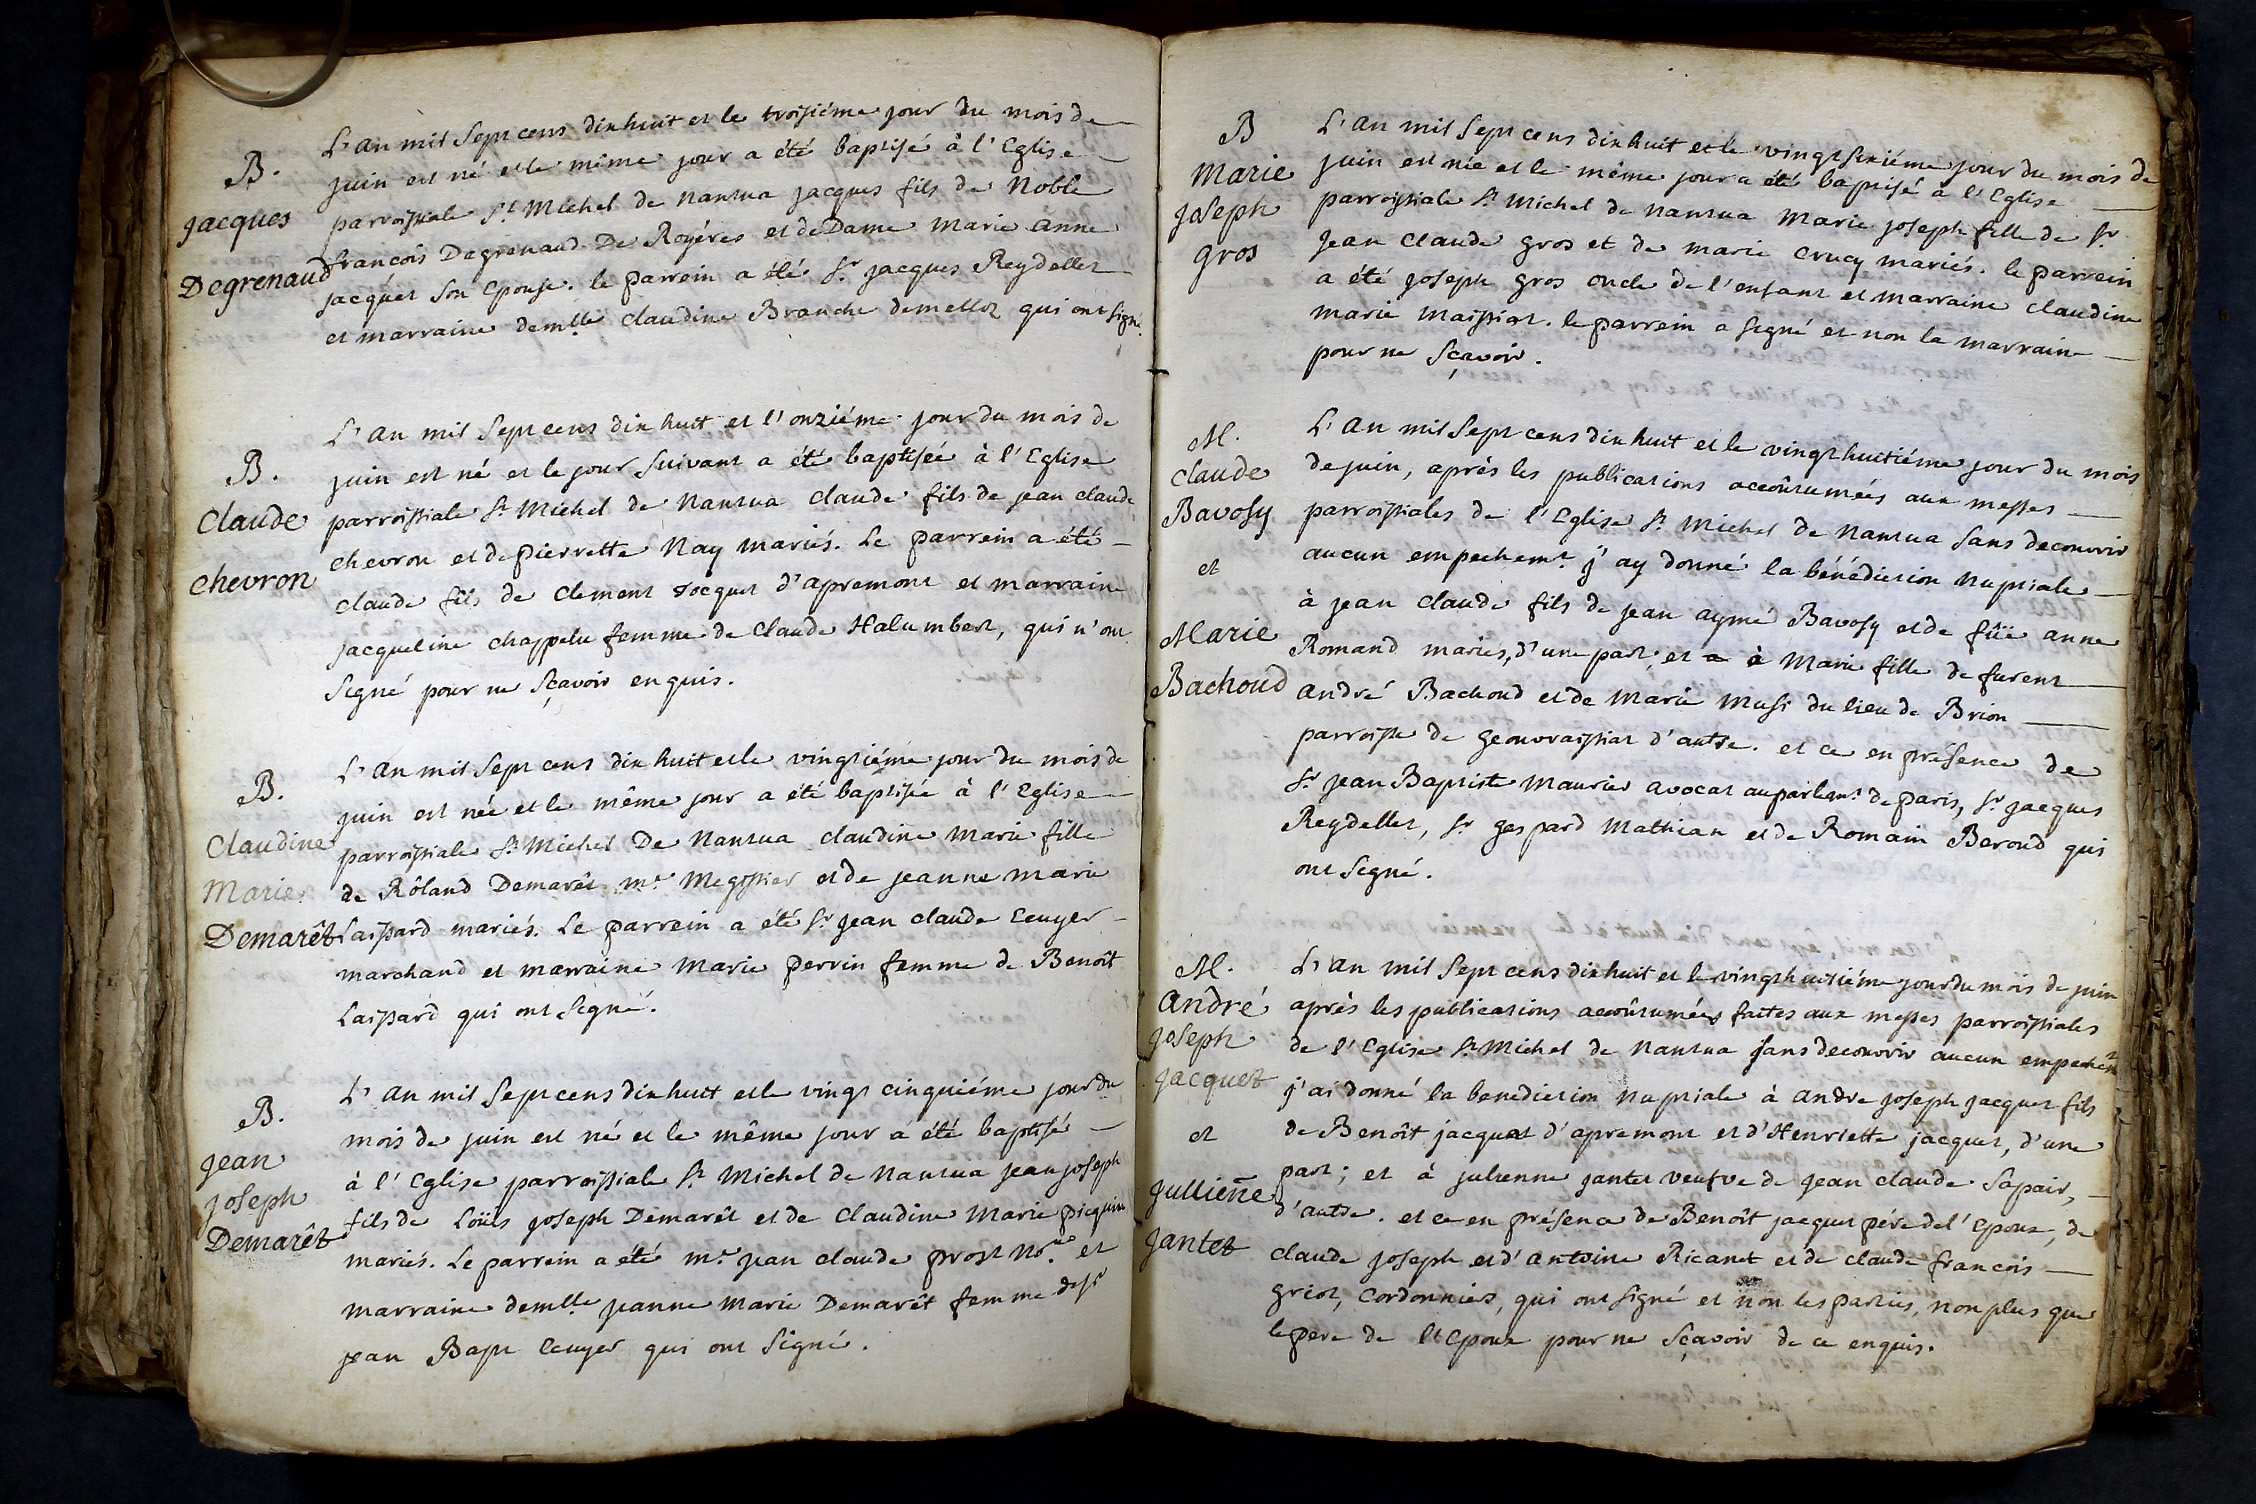 B.
jacques
Degrenaud
L'an mil sept cens dix huit et le troisiéme jour du mois de
juin est né et le même jour a été baptisé à l'Eglise
parroissiale St Michel de Nantua jacques fils de Noble
francois Degrenaud De Royéres et de Dame marie anne
jacquet son Epouse. le parrein a été Sr jacques Reydellet
et marraine demlle claudine Branche demelloz qui ont signé.
B.
Claude
chevron
L'an mil sept cens dix huit et l'onziéme jour du mois de
juin est né et le jour suivant a été baptisée à l'Eglise
parroissiale St Michel de Nantua claude fils de jean claude
chevron et de pierrette Nay mariés. Le parrein a été
claude fils de clement Jocquet d'apremont et marraine
jacqueline chappelu femme de claude Halumbert, qui n'ont
signé pour ne sçavoir enquis.
B.
Claudine
Marie
Demarêt
L'an mil sept cens dix huit et le vingtiéme jour du mois de
juin est née et le même jour a été baptisée à l'Eglise
parroissiale St Michel De Nantua claudine marie fille
de Rôland Demarêt me Megissier et de jeanne marie
Laissard mariés. Le parrein a été Sr jean claude Ecuyer
marchand et marraine marie perrin femme de Benoît
Laissard qui ont signé.
B.
jean
joseph
Demarêt
L'an mil sept cens dix huit et le vingt cinquiéme jour du
mois de juin est né et le même jour a été baptisé
à l'Eglise parroissiale St Michel de Nantua jean joseph
fils de Loüis joseph Demarêt et de claudine marie picquin
mariés. Le parrein a été me jean claude prost Nore et
marraine demlle jeanne marie Demarêt femme de Sr
jean Bapt Ecuyer qui ont signé.
B
Marie
joseph
gros
L'an mil sept cens dix huit et le vingt sixiéme jour du mois de
juin est née et le même jour a été baptisé à l'Eglise
parroissiale St Michel de nantua marie joseph fille de Sr
jean claude gros et de marie crucy mariés. le parrein
a été joseph gros oncle de l'enfant et marraine claudine
marie maissiat. le parrein a signé et non la marraine
pour ne sçavoir.
M.
claude
Bavosy
et
Marie
Bachoud
L'an mil sept cens dix huit et le vingt huitiéme jour du mois
de juin, après les publications accoûtumées aux messes
parroissiales de l'Eglise St Michel de Nantua sans decouvrir
aucun empechemt j'ay donné la bénédiction Nuptiale
à jean claude fils de jean aymé Bavosy et de füe anne
Romand mariés, d'une part; et a à Marie fille de furent
andré Bachoud et de marie musi du lieu de Brion
parroisse de geouvraissiat d'autre. et ce en présence de
Sr jean Baptiste maurier avocat au parlemt de paris, Sr jacques
Reydellet, Sr gaspard Mathian et de Romain Beroud qui
ont signé.
M.
andré
joseph
jacquet
et
jullieñe
jantet
L'an mil sept cens dix huit et le vingt huitiéme jour du mois de juin
après les publications accoûtumées faites aux messes parroissiales
de l'Eglise St Michel de Nantua sans decouvrir aucun empechemt
j'ai donné la benediction Nuptiale à andre joseph jacquet fils
de Benoît jacquet d'apremont et d'Henriette jacquet, d'une
part; et à julienne jantet veufve de jean claude Sapair,
d'autre. et ce en présence de Benoît jacquet pére de l'Epoux, de
claude joseph et d'antoine Ricanet et de claude francois
griot, cordonnier, qui ont signé et non les parties, non plus que
le pere de l'Epoux pour ne sçavoir de ce enquis.